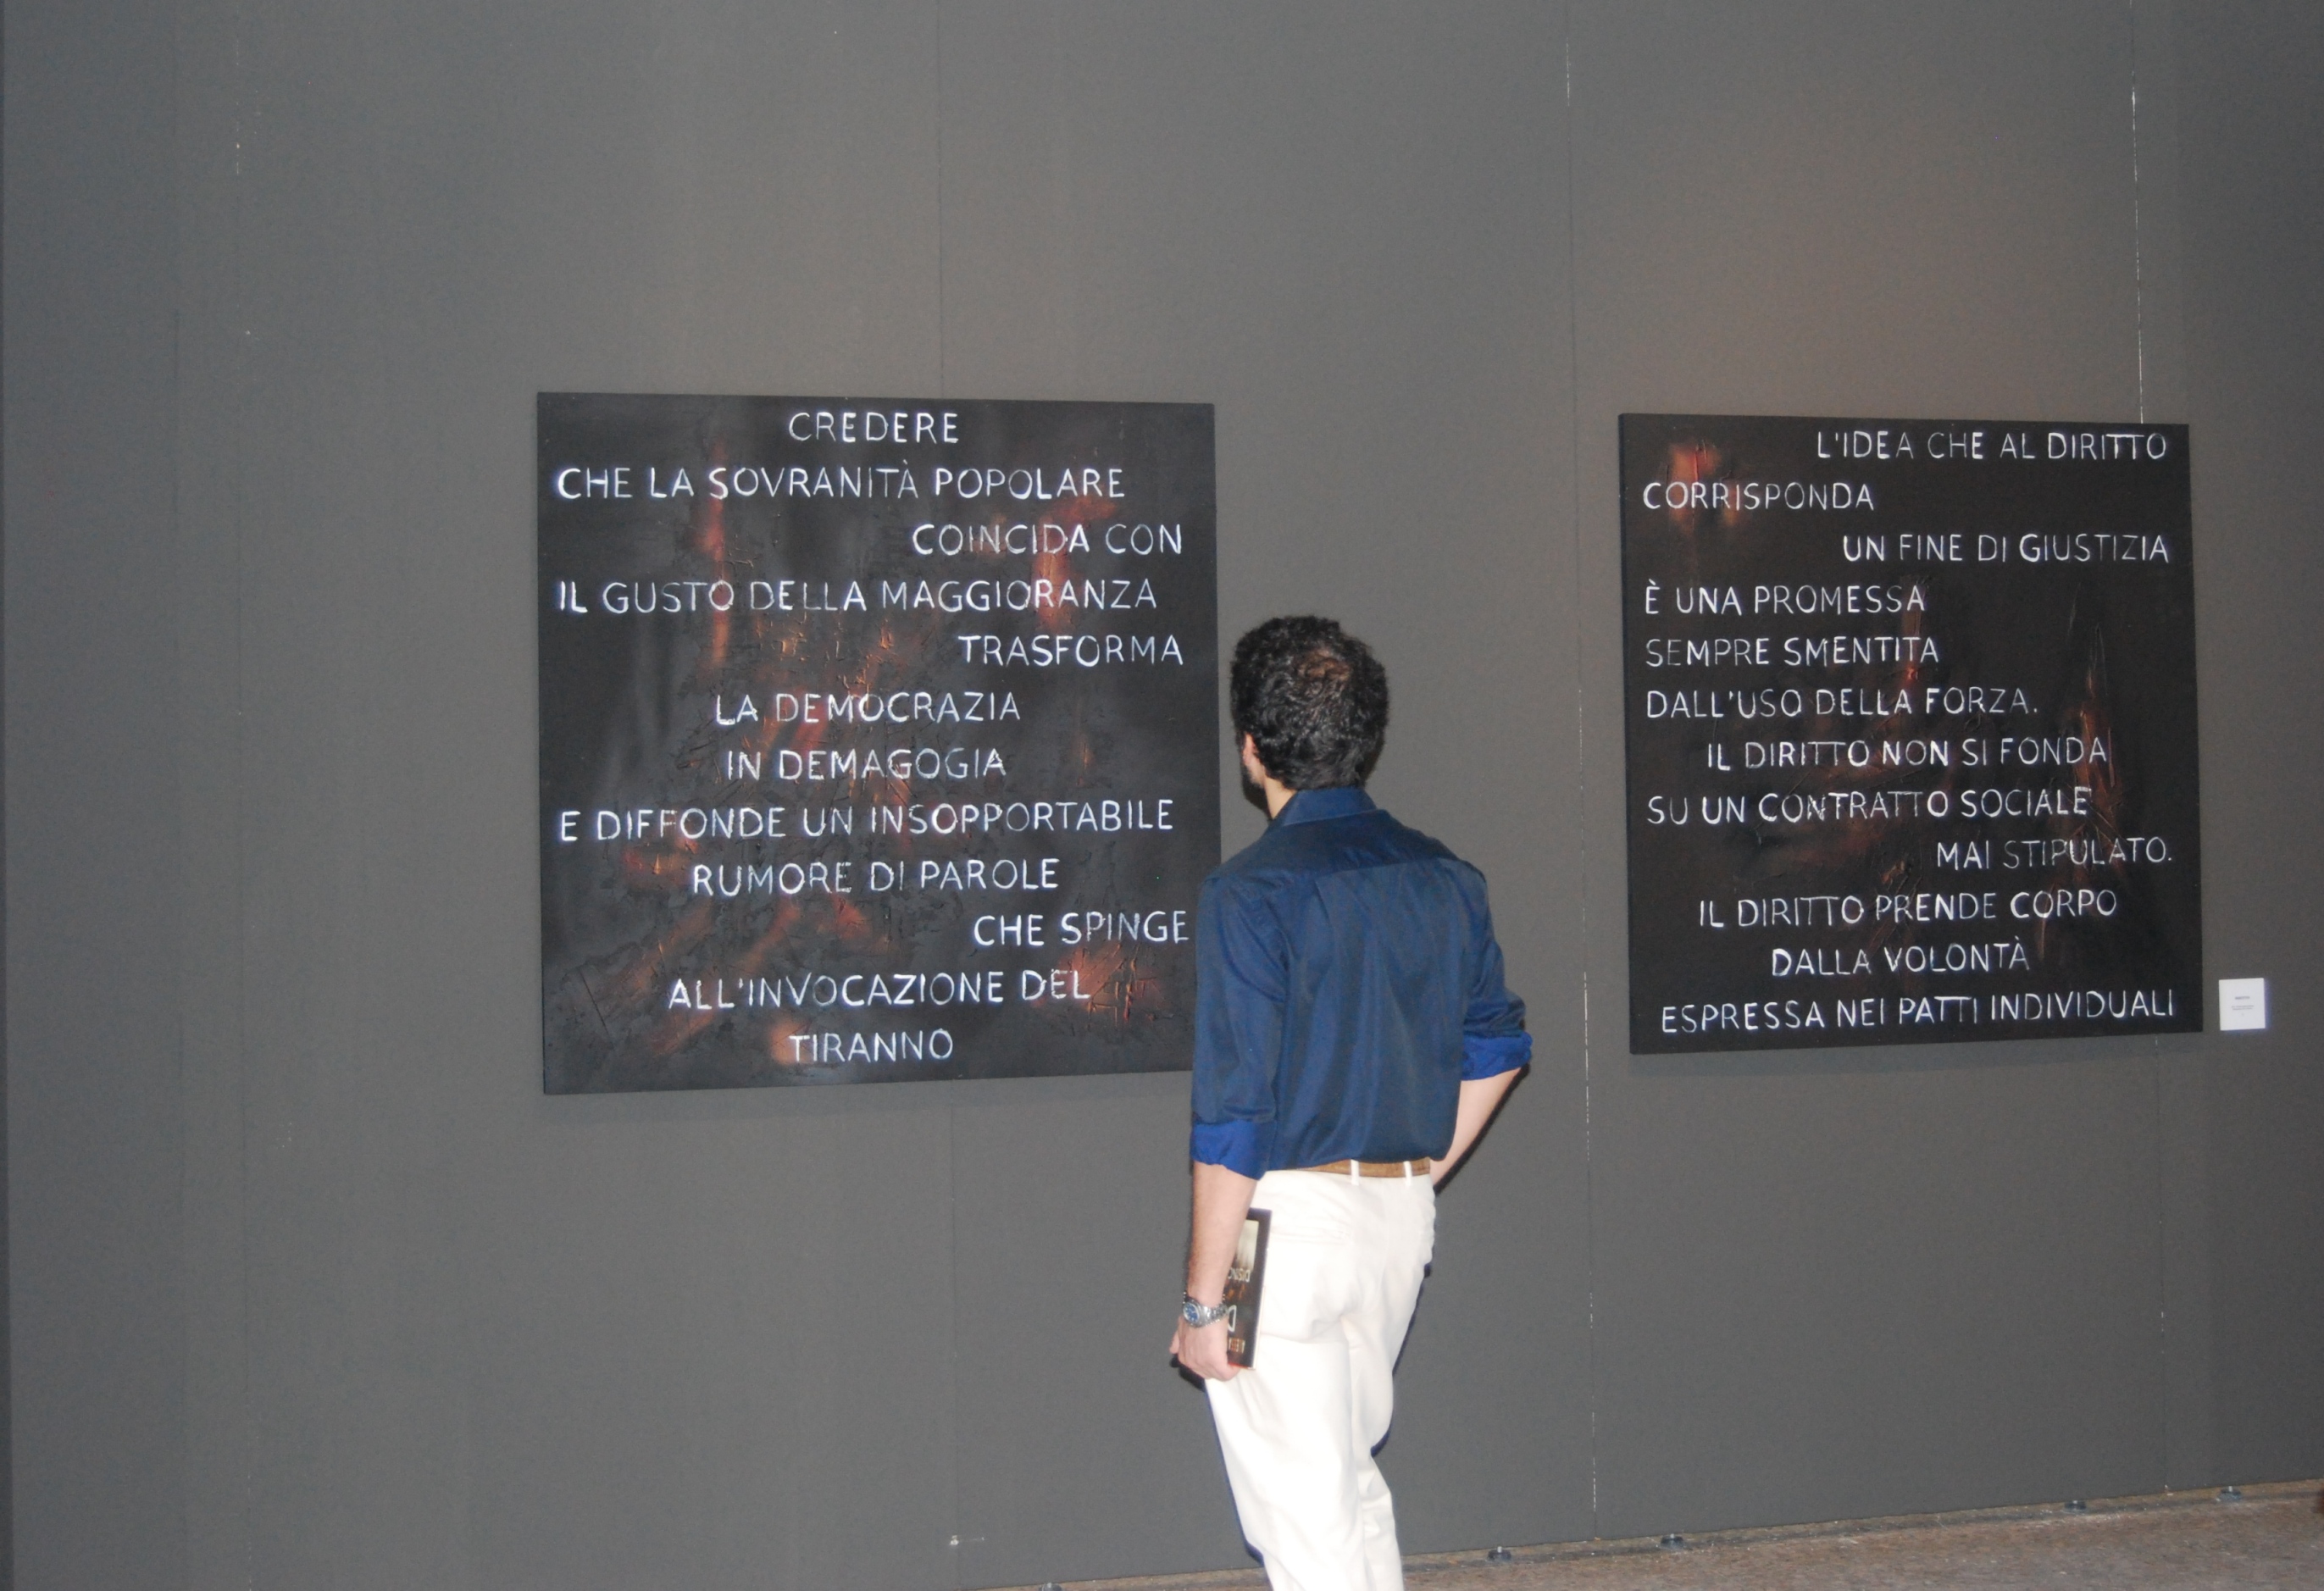 CREDERE
CHE LA SOVRANITÀ POPOLARE
COINCIDA CON
IL GUSTO DELLA MAGGIORANZA
TRASFORMA
LA DEMOCRAZIA
IN DEMAGOGIA
E DIFFONDE UN INSOPPORTABILE
RUMORE DI PAROLE
CHE SPINGE
ALL'INVOCAZIONE DEL
TIRANNO
L'IDEA CHE AL DIRITTO
CORRISPONDA
UN FINE DI GIUSTIZIA
È UNA PROMESSA
SEMPRE SMENTITA
DALL'USO DELLA FORZA.
IL DIRITTO NON SI FONDA
SU UN CONTRATTO SOCIALE
MAI STIPULATO.
IL DIRITTO PRENDE CORPO
DALLA VOLONTÀ
ESPRESSA NEI PATTI INDIVIDUALI